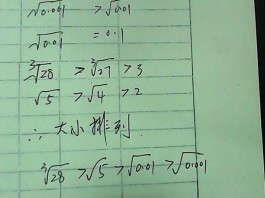 √0.001 > √0.01
√0.01 = 0.1
∛28 > ∛27 > 3
√5 > √4 > 2
∴ 大小排列
∛28 > √5 > √0.01 > √0.001